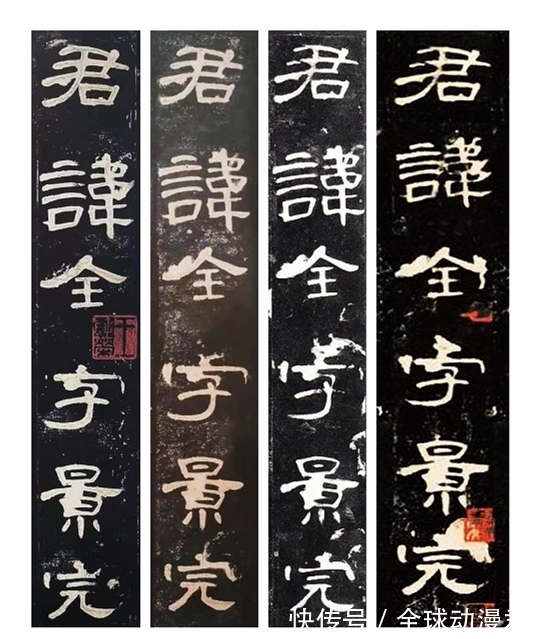 君諱全字景完
君諱全字景完
君諱全字景完
君諱全字景完
快传号 / 全球动漫